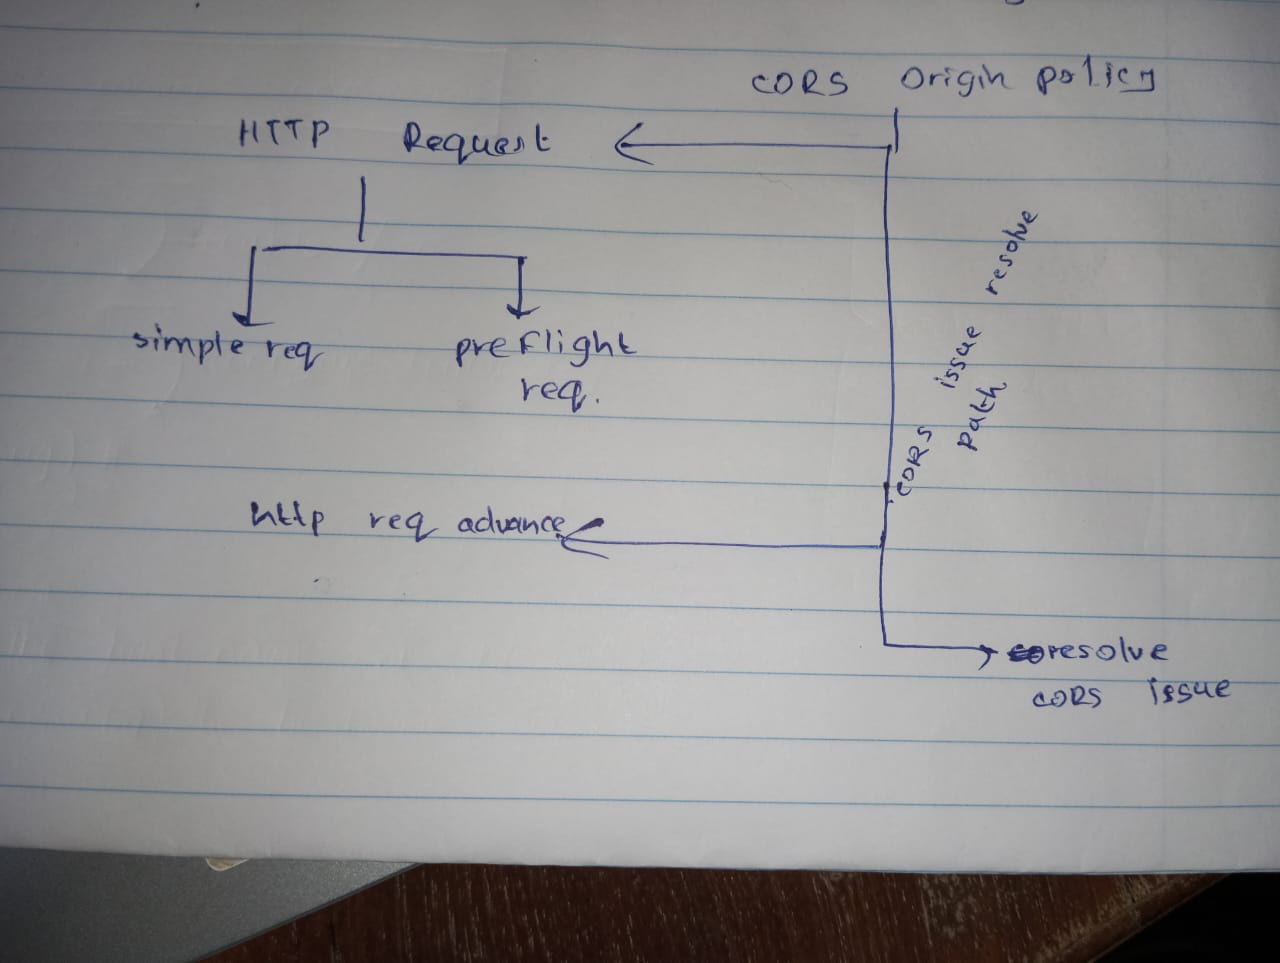 CORS Origin policy
HTTP Request
simple req
preflight
req.
CORS issue resolve
path
http req advance
resolve
CORS issue